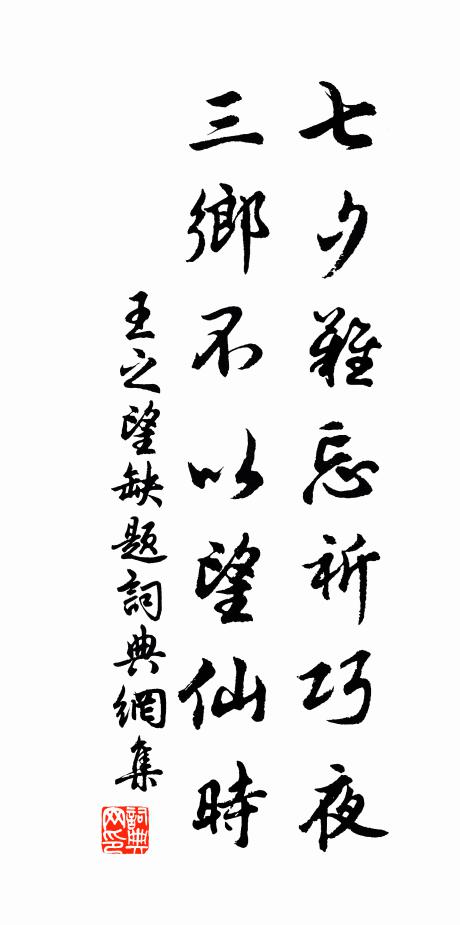 七夕難忘祈巧夜
三鄉不以望仙時
王之望缺題詞典網集
詞典
网印